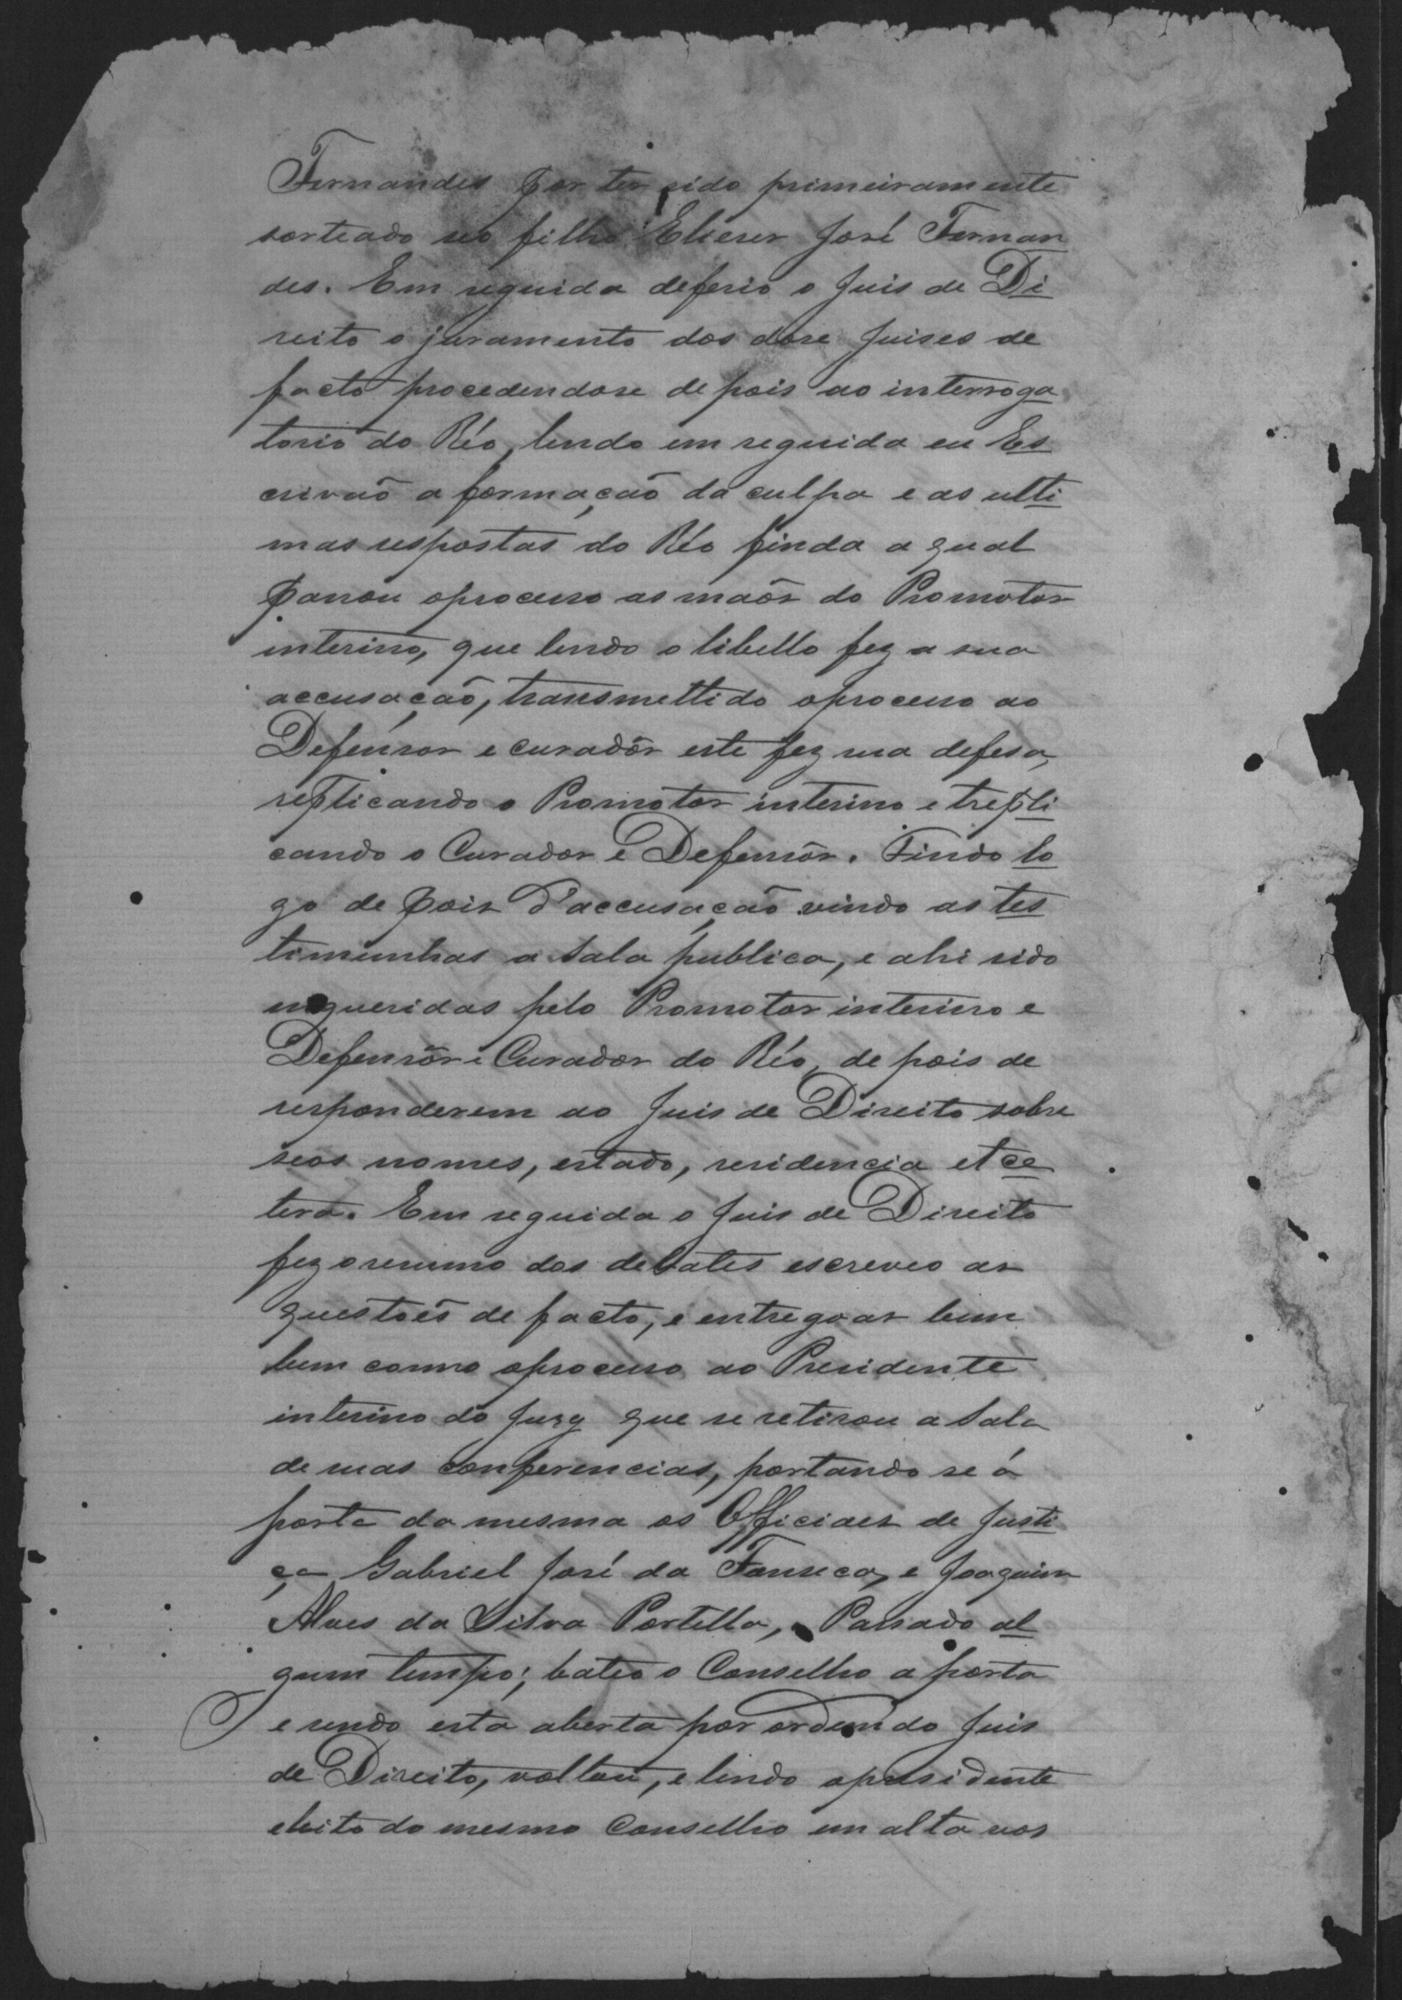 Fernandes por ter sido primeiramente
sorteado seo filho Elieser José Fernan
des. Em seguida deferio o Juis de Di
reito o juramento dos dose Juises de
facto procedendose de pois ao interroga
torio do Réo, lendo em seguida eu Es
crivaõ a formaçaõ da culpa e as ulti
mas respostas do Réo finda a qual
passou oprocesso as maõs do Promotor
interino, que lendo o libello fez a sua
accusaçaõ, transmettido oprocesso ao
Defensor e curador este fez sua defesa,
replicando o Promotor interino e trepli
cando o Curador e Defensor. Findo lo
go de pois d'accusaçaõ vindo as tes
timunhas a sala publica, e ahi sido
enqueridas pelo Promotor interino e
Defensor e Curador do Réo, de pois de
responderem ao Juis de Direito sobre
seos nomes, estado, residencia et ce
tera. Em seguida o Juis de Direito
fez oresumo dos debates escreveo as
questoẽs de facto, e entregoas bem
bem como oprocesso ao Presidente
interino do Jury que se retirou a sala
de suas conferencias, portando se á
porta da mesma os Officiaes de Justi
ça Gabriel José da Fonseca, e Joaquim
Alves da Silva Portella, Passado al
gum tempo; bateo o Conselho a porta
e sendo esta aberta por ordem do Juis
de Direito, voltou, e lendo opresidente
eleito do mesmo Conselho em alta vos